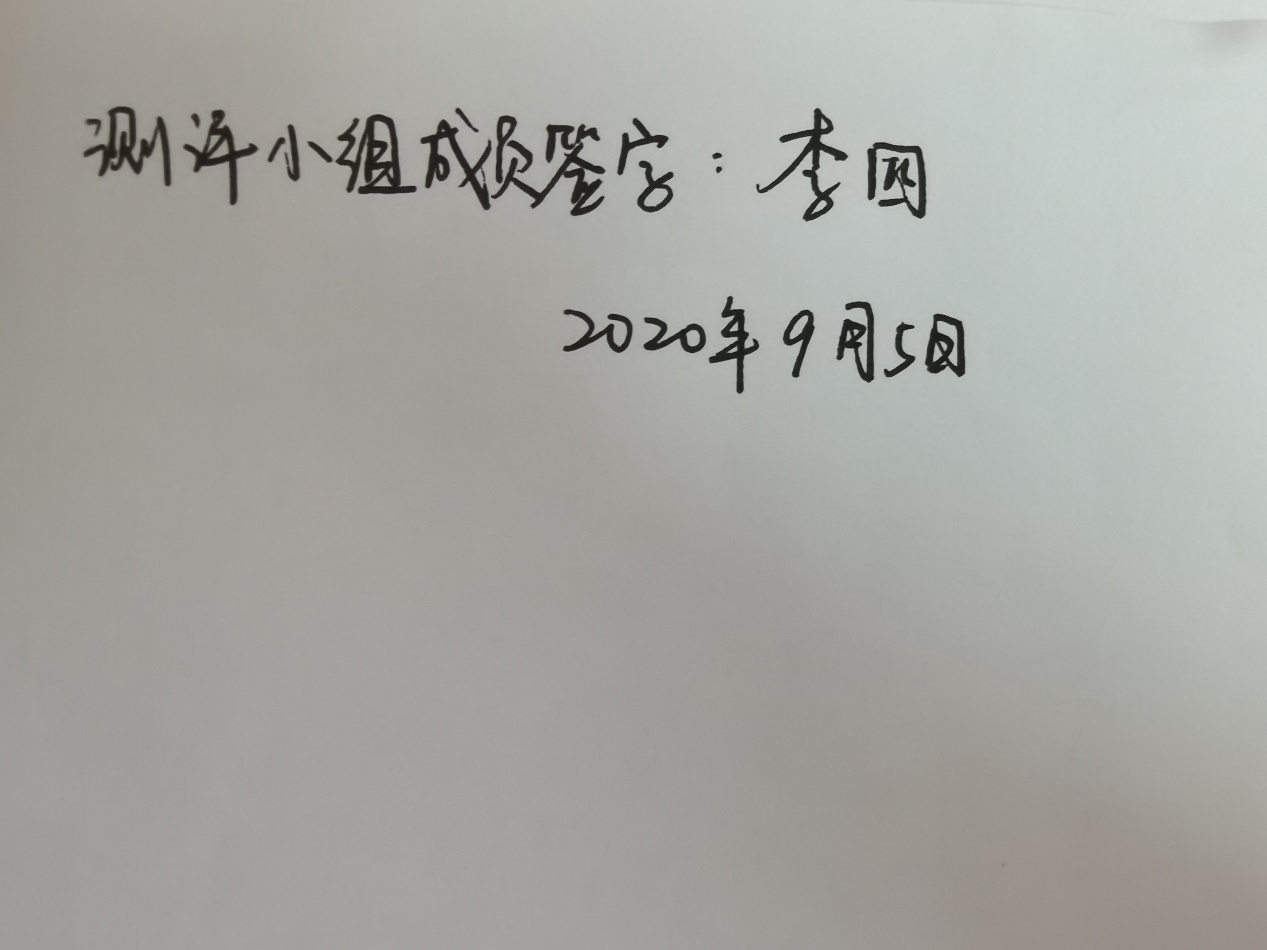 测评小组成员签字：李团
2020年9月5日